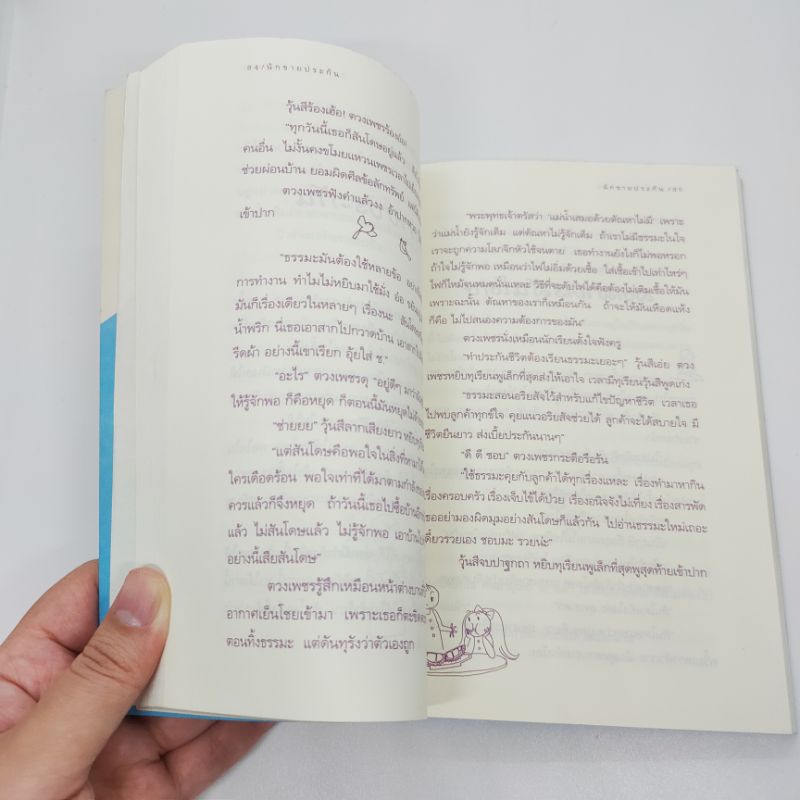 84/นักขายประกัน
วุ้นสีร้องเฮ้อ! ดวงเพชรร้อง
"ทุกวันนี้เธอก็สันโดษอยู่แล้ว
คนอื่น ไม่งั้นคงขโมยแหวนเพชรเวลา
ช่วยผ่อนบ้าน ยอมผิดศีลข้อลักทรัพย์
ดวงเพชรฟังคำแล้วงง อ้าปาก
เข้าปาก
"ธรรมะมันต้องใช้หลายข้อ
การทำงาน ทำไมไม่หยิบมาใช้มั่ง อ๋อ
มันก็เรื่องเดียวในหลายๆ เรื่องนะ
น้ำพริก นี่เธอเอาสากไปกวาดบ้าน เอา
รีดผ้า อย่างนี้เขาเรียก อุ้ยใส่ ซู."
"อะไร" ดวงเพชรดุ "อยู่ดีๆ มาว่า
ให้รู้จักพอ ก็คือหยุด ก็ตอนนี้มันหยุดไม่
"ช่ายยย" วุ้นสีลากเสียงยาว หยิบ
"แต่สันโดษคือพอใจในสิ่งที่หามาได้
ใครเดือดร้อน พอใจเท่าที่ได้มาตามกำลัง
ควรแล้วก็จึงหยุด ถ้าวันนี้เธอไปซื้อบ้าน
แล้ว ไม่สันโดษแล้ว ไม่รู้จักพอ เอาบ้าน
อย่างนี้เสียสันโดษ"
ดวงเพชรรู้สึกเหมือนหน้าต่างบาน
อากาศเย็นโชยเข้ามา เพราะเธอก็ตะขิด
ตอนทิ้งธรรมะ แต่ดันทุรังว่าตัวเองถูก
นักขายประกัน /85
"พระพุทธเจ้าตรัสว่า 'แม่น้ำเสมอด้วยตัณหาไม่มี' เพราะ
ว่าแม่น้ำยังรู้จักเต็ม แต่ตัณหาไม่รู้จักเต็ม ถ้าเราไม่มีธรรมะในใจ
เราจะถูกความโลภจิกหัวใช้จนตาย เธอทำงานยังไงก็ไม่พอหรอก
ถ้าใจไม่รู้จักพอ เหมือนว่าไฟไม่อิ่มด้วยเชื้อ ใส่เชื้อเข้าไปเท่าไหร่ๆ
ไฟก็ไหม้จนหมดนั่นแหละ วิธีที่จะดับไฟได้คือต้องไม่เติมเชื้อให้มัน
เพราะฉะนั้น ตัณหาของเราก็เหมือนกัน ถ้าจะให้มันเหือดแห้ง
ก็คือ ไม่ไปสนองความต้องการของมัน"
ดวงเพชรนั่งเหมือนนักเรียนตั้งใจฟังครู
"ทำประกันชีวิตต้องเรียนธรรมะเยอะๆ" วุ้นสีเอ่ย ดวง
เพชรหยิบทุเรียนพูเล็กที่สุดส่งให้เอาใจ เวลามีทุเรียนวุ้นสีพูดเก่ง
"ธรรมะสอนอริยสัจไว้สำหรับแก้ไขปัญหาชีวิต เวลาเธอ
ไปพบลูกค้าทุกข์ใจ คุยแนวอริยสัจช่วยได้ ลูกค้าจะได้สบายใจ มี
ชีวิตยืนยาว ส่งเบี้ยประกันนานๆ"
"ดี ดี ชอบ" ดวงเพชรกระดือรือร้น
"ใช้ธรรมะคุยกับลูกค้าได้ทุกเรื่องแหละ เรื่องทำมาหากิน
เรื่องครอบครัว เรื่องเจ็บไข้ได้ป่วย เรื่องอนิจจังไม่เที่ยง เรื่องสารพัด
เธออย่ามองผิดมุมอย่างสันโดษก็แล้วกัน ไปอ่านธรรมะใหม่เถอะ
เดี๋ยวรวยเอง ชอบมะ รวยน่ะ"
วุ้นสีจบปาฐกถา หยิบทุเรียนพูเล็กที่สุดพูสุดท้ายเข้าปาก